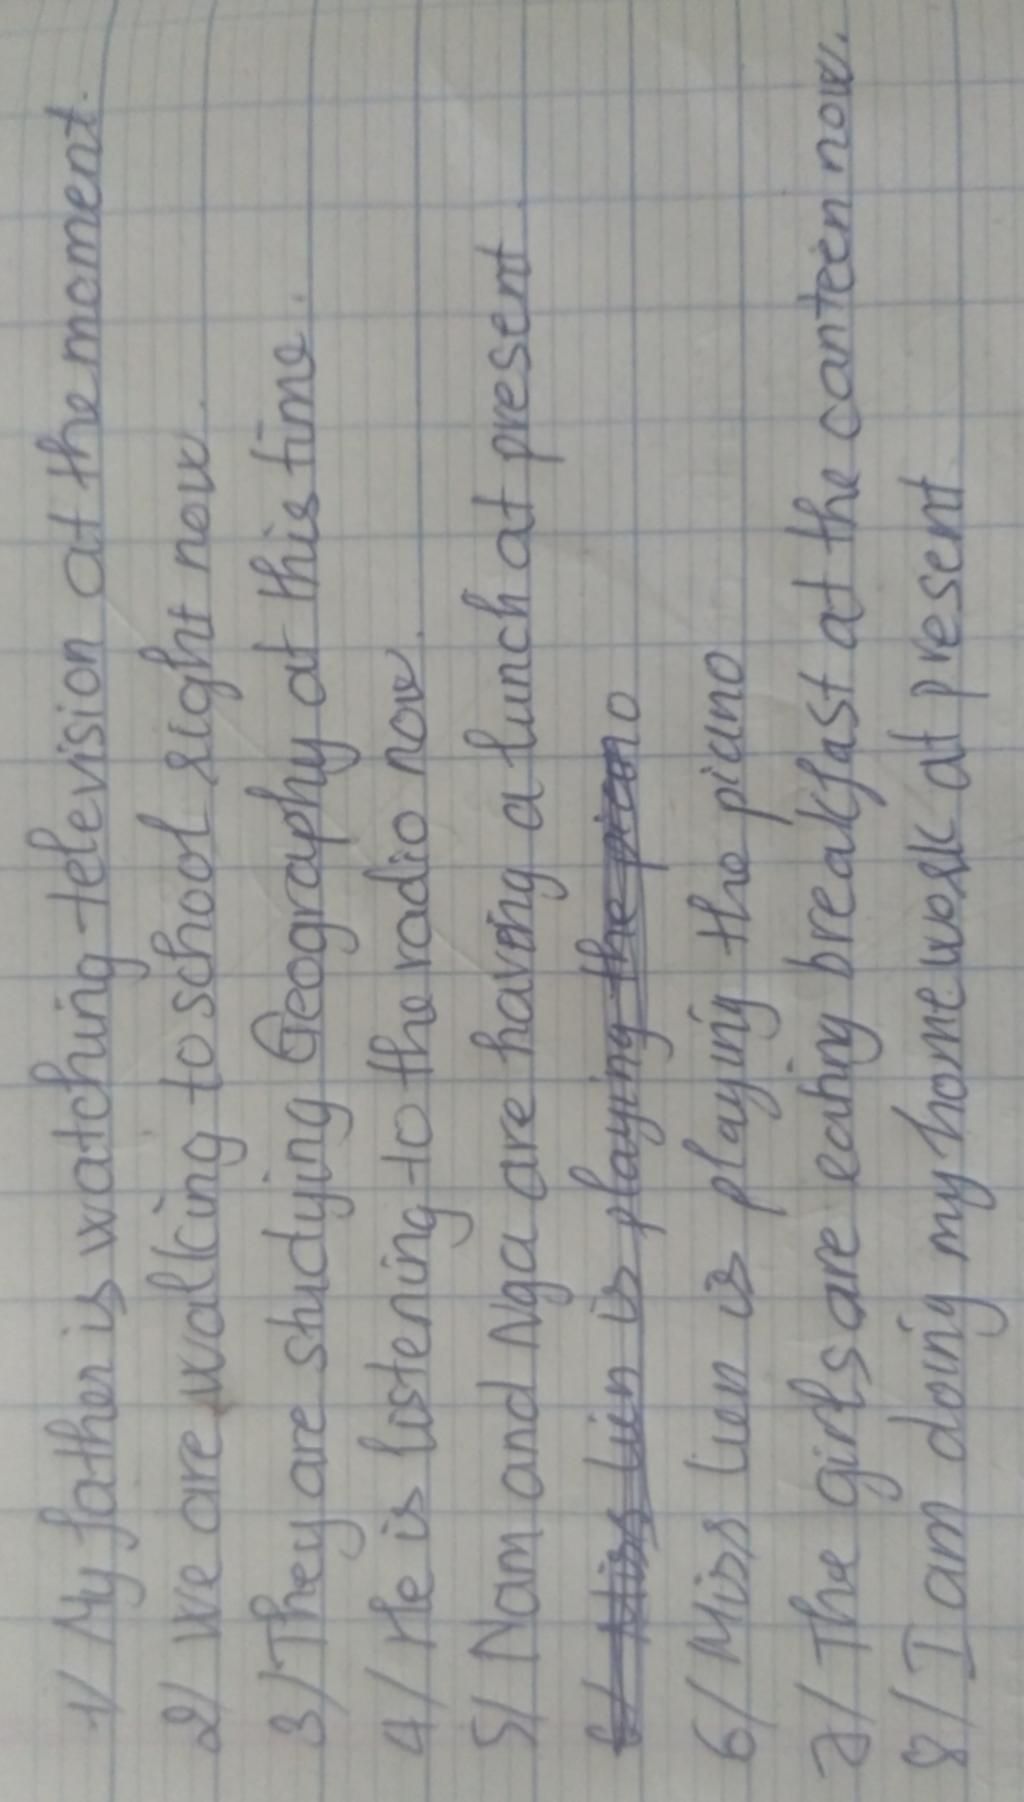 1/ My father is watching television at the moment.
2/ We are walking to school right now.
3/ They are studying Geography at this time.
4/ He is listening to the radio now.
5/ Nam and Nga are having a lunch at present.
6/ Miss Lien is playing the piano
6/ Miss Lien is playing the piano
7/ The girls are eating breakfast at the canteen now.
8/ I am doing my homework at present